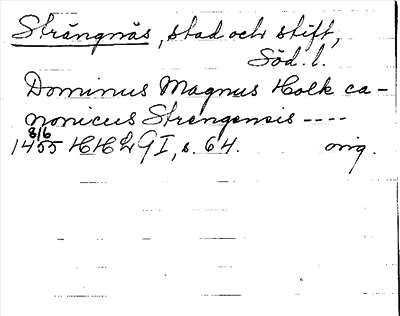 Strängnäs, stad och stift,
Söd. l.
Dominus Magnus Holk ca-
nonicus Strengensis ----
8/6
1455 HH LG I, s. 64. orig.